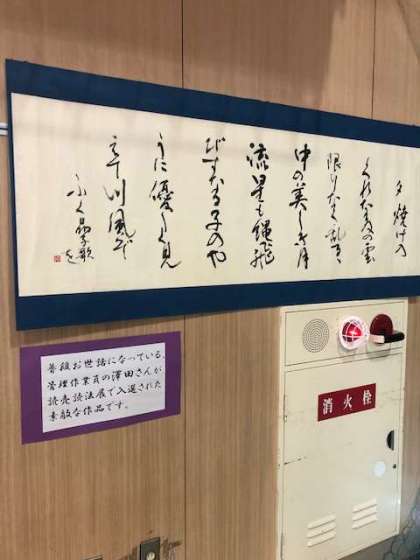 夕焼けの
くれなゐの雲
限りなく乱るる
中の美しき月
流星も縄飛
びすなる子のや
うに優しく見
えて川風ぞ
ふく 晶子歌
普段お世話になっている、
管理作業員の澤田さんが
読売読法展で入選された
素敵な作品です。
消火栓